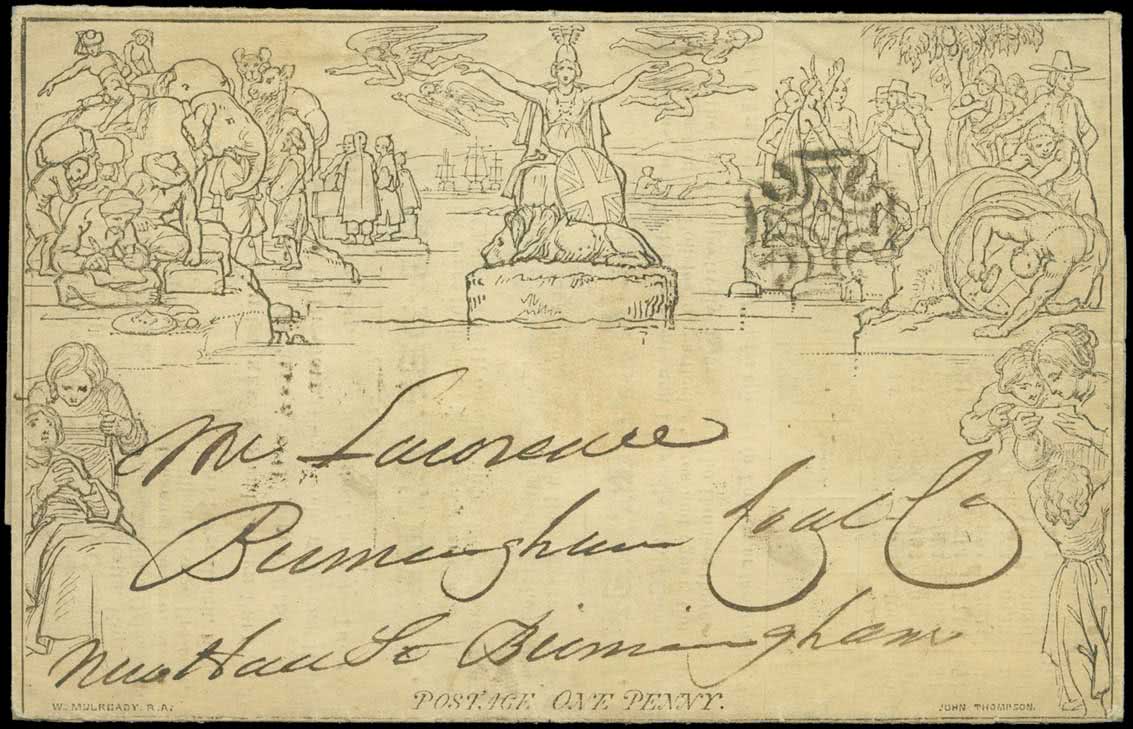 Mr Lawrence
Birmingham Coal Co
New Hall St Birmingham
POSTAGE ONE PENNY.
W. MULREADY. R.A.
JOHN THOMPSON.